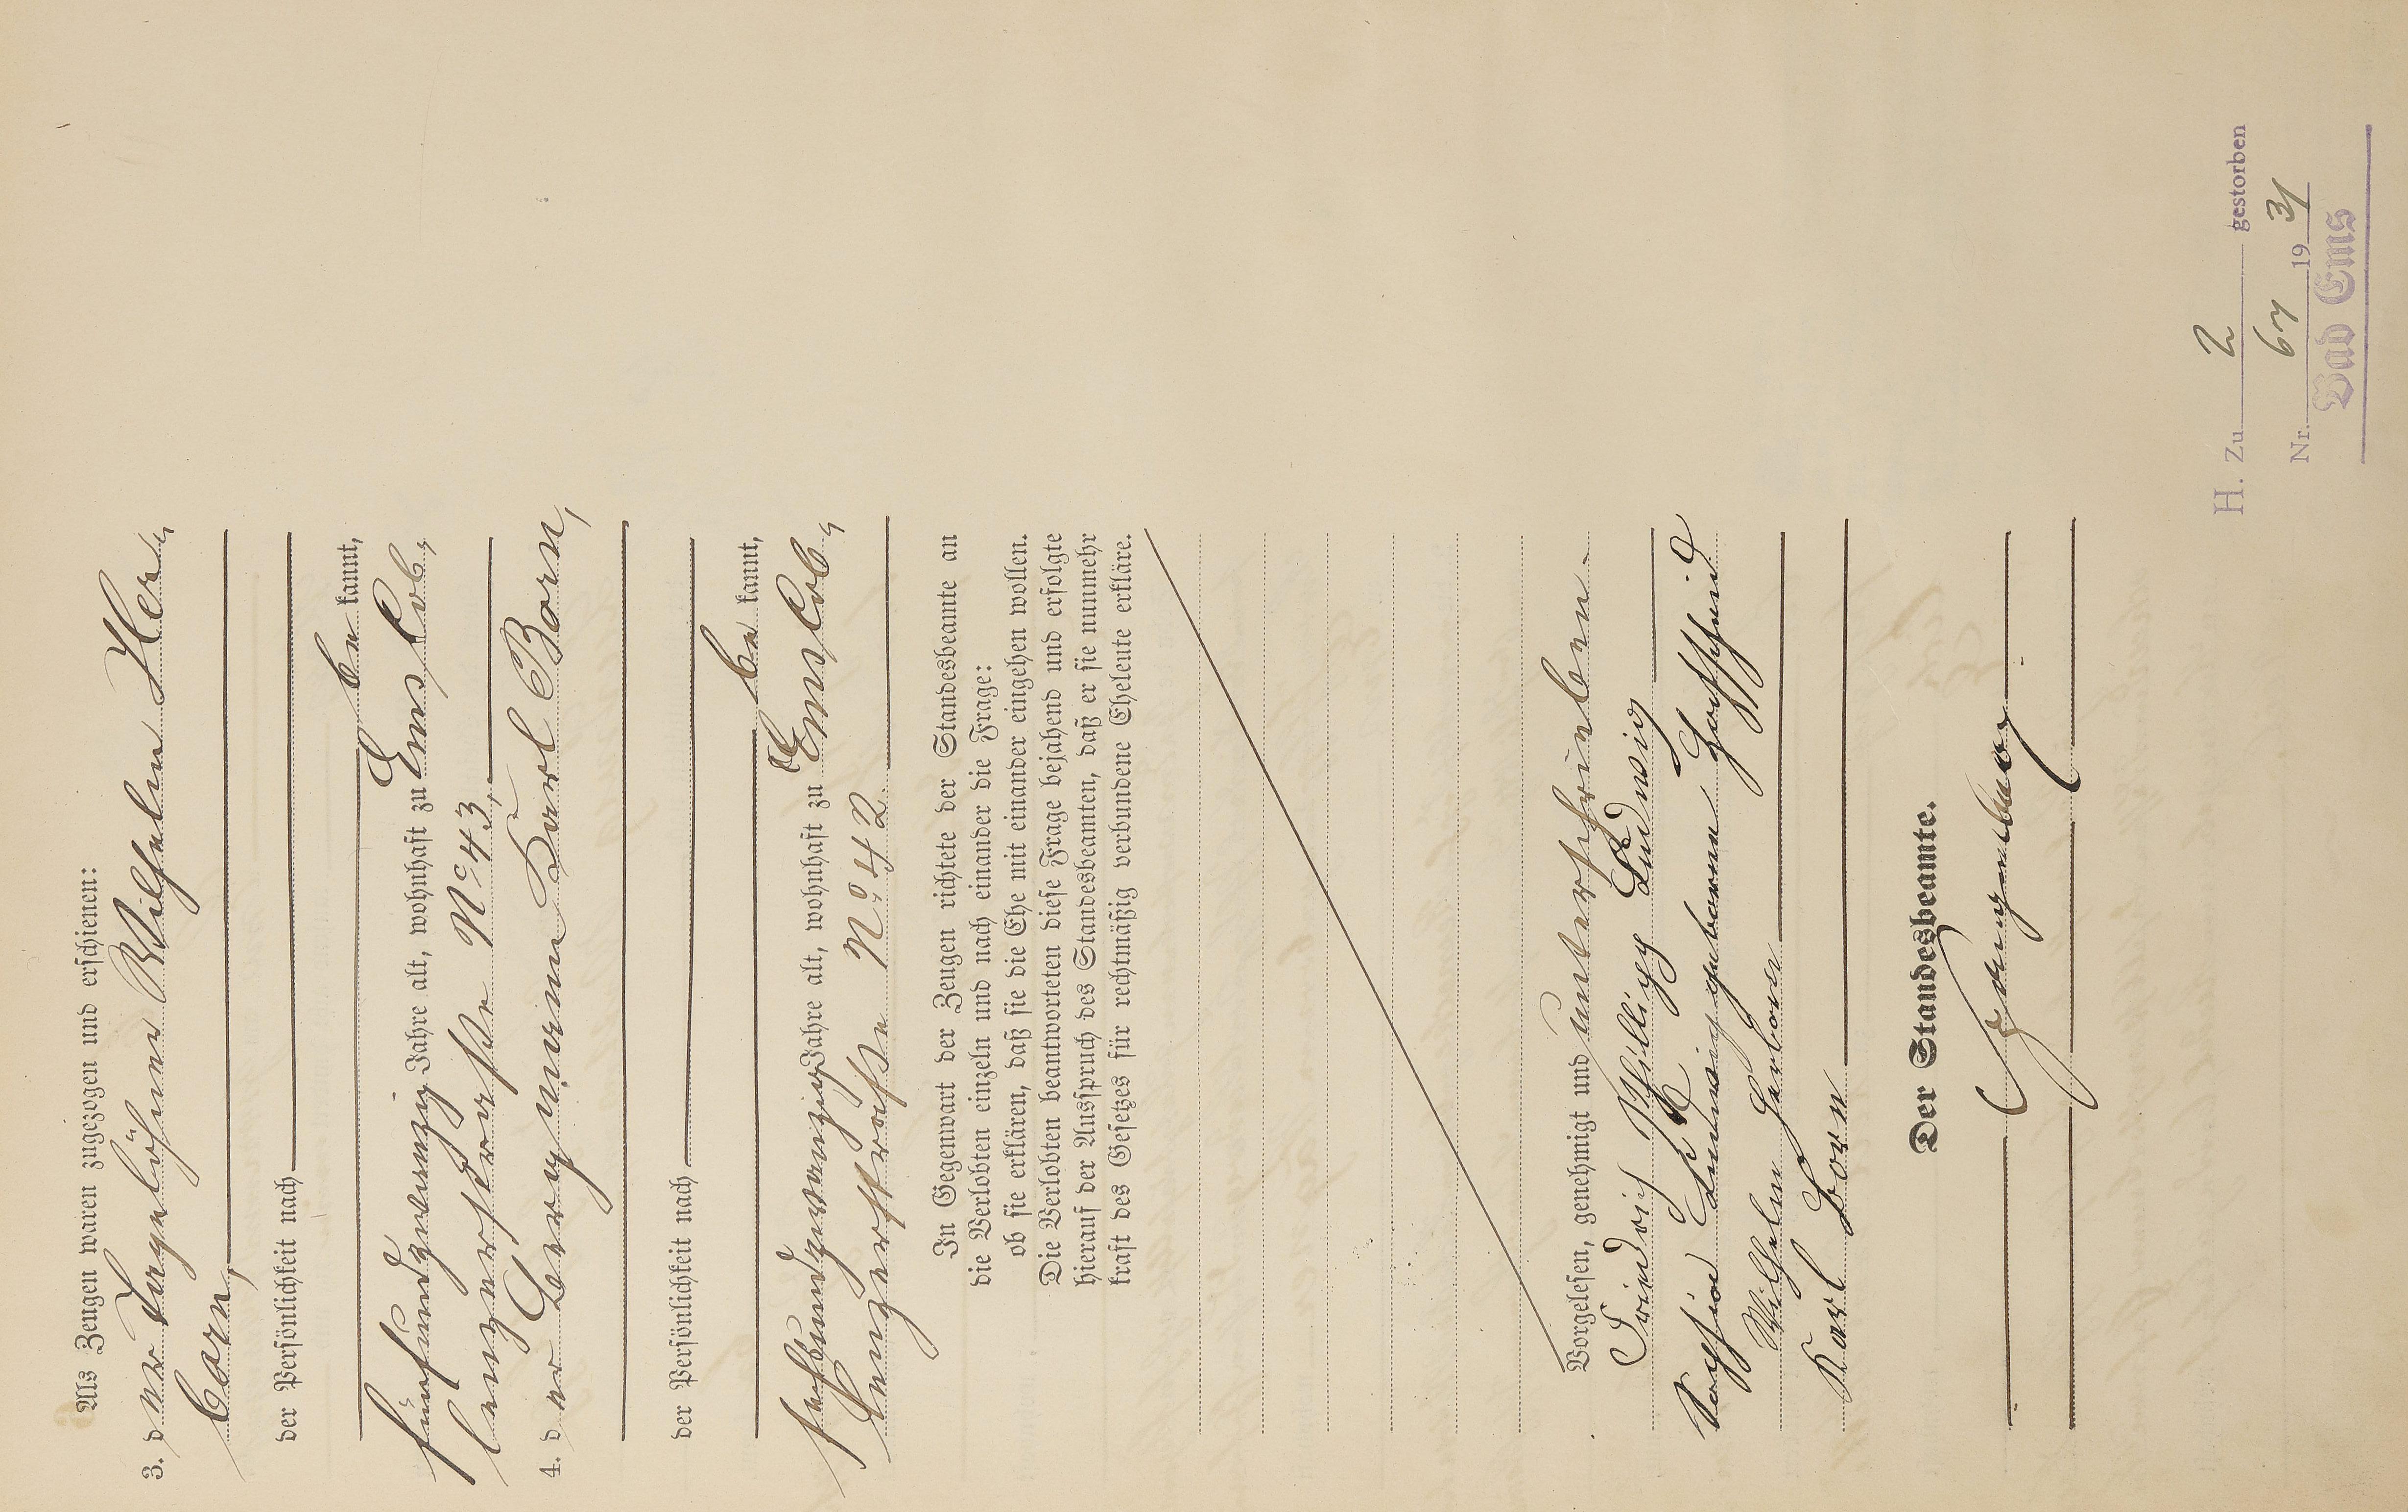 Als Zeugen waren zugezogen und erschienen:
3. der Tagelöhner Wilhelm Her-
born,
der Persönlichkeit nach
be kannt,
fünfundzwanzig Jahre alt, wohnhaft zu Ems, Lob-
lenzerstraße No 43,
4. der Bergmann Karl Born,
der Persönlichkeit nach
be kannt,
sechsundzwanzig Jahre alt, wohnhaft zu Ems, Cob-
lenzerstraße No 42.
In Gegenwart der Zeugen richtete der Standesbeamte an
die Verlobten einzeln und nach einander die Frage:
ob sie erklären, daß sie die Ehe mit einander eingehen wollen.
Die Verlobten beantworteten diese Frage bejahend und erfolgte
hierauf der Ausspruch des Standesbeamten, daß er sie nunmehr
kraft des Gesetzes für rechtmäßig verbundene Eheleute erkläre.
Vorgelesen, genehmigt und unterschrieben.
Friedrich Philipp Ludwig
Ludwig geborene
Wilhelm Herborn
Karl Born
Der Standesbeamte.
H. Zu 2 gestorben
Nr. 67 1931
Bad Ems